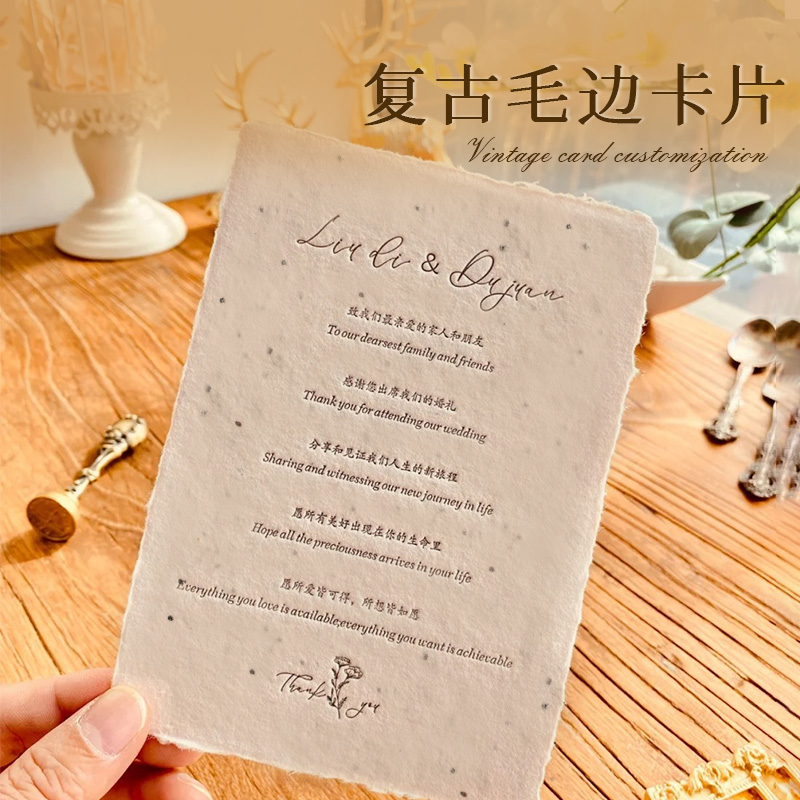 复古毛边卡片
Vintage card customization
Liu di & Dujuan
致我们最亲爱的家人和朋友
To our dearsest family and friends
感谢您出席我们的婚礼
Thank you for attending our wedding
分享和见证我们人生的新旅程
Sharing and witnessing our new journey in life
愿所有美好出现在你的生命里
Hope all the preciousness arrives in your life
愿所爱皆可得，所想皆如愿
Everything you love is available,everything you want is achievable
Thank you